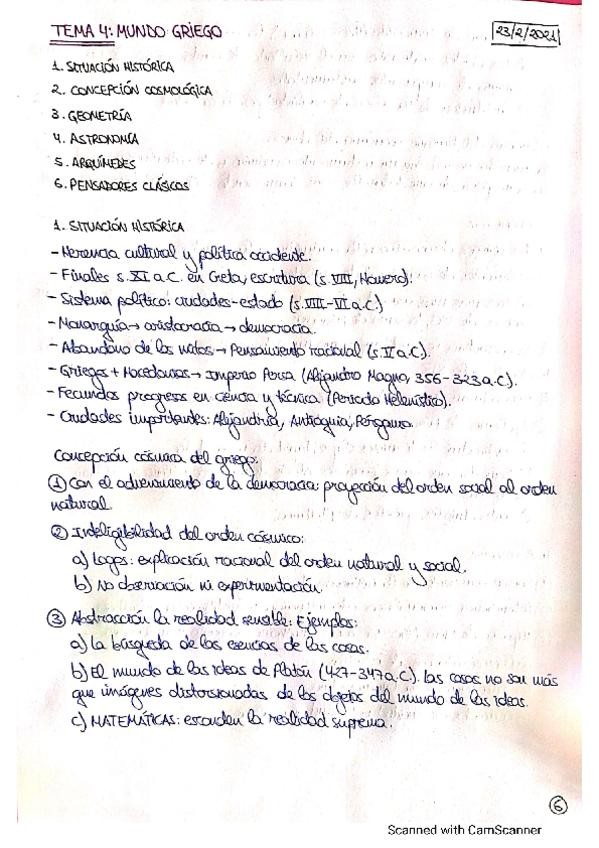 TEMA 4: MUNDO GRIEGO
23/2/2021
1. SITUACIÓN HISTÓRICA
2. CONCEPCIÓN COSMOLÓGICA
3. GEOMETRÍA
4. ASTRONOMÍA
5. ARQUÍMEDES
6. PENSADORES CLÁSICOS
1. SITUACIÓN HISTÓRICA
- Herencia cultural y política occidente.
- Finales s. XI a.C. en Creta, escritura (s. VIII, Homero).
- Sistema político: ciudades-estado (s. VIII-VI a.C.)
- Monarquía → aristocracia → democracia.
- Abandono de los mitos → Pensamiento racional (s. V a.C.).
- Griegos + Macedonios → Imperio Persa (Alejandro Magno, 356-323 a.C.).
- Fecundos progresos en ciencia y técnica (Periodo Helenístico).
- Ciudades importantes: Alejandría, Antioquia, Pérgamo.
Concepción cósmica del griego:
① Con el advenimiento de la democracia: proyección del orden social al orden
natural.
② Inteligibilidad del orden cósmico:
a) Logos: explicación racional del orden natural y social.
b) No observación ni experimentación.
③ Abstracción la realidad sensible: Ejemplos:
a) La búsqueda de las esencias de las cosas.
b) El mundo de las ideas de Platón (427-347 a.C.). las cosas no son más
que imágenes distorsionadas de los objetos del mundo de las ideas.
c) MATEMÁTICAS: esconden la realidad suprema.
6
Scanned with CamScanner